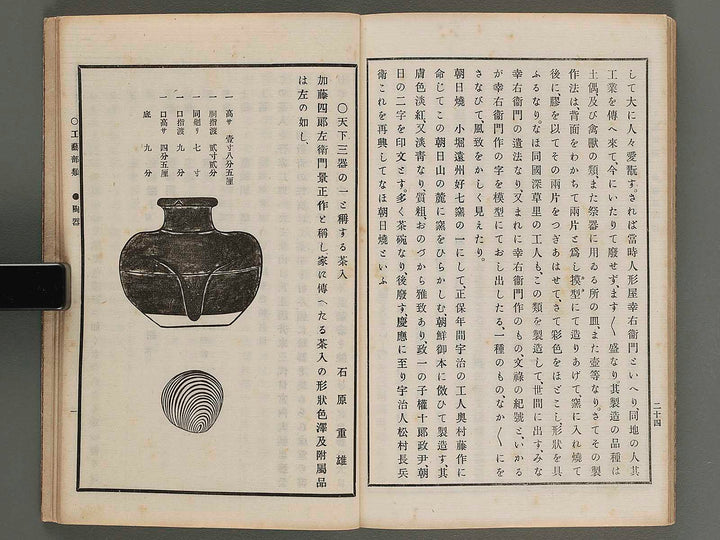 して大に人々愛翫す。されば當時人形屋幸右衞門といへり同地の人其
工業を傳へ來て、今にいたりて廢せず、ます〳〵盛なり其製造の品種は
土偶、及び禽獸の類、また祭器に用ゐる所の皿、また壺等なり。さてその製
作法は、背面をわかちて兩片と爲し模型にて造りあげて、窯に入れ燒て
後に、膠を以てその兩片をつぎあはせて、さて彩色をほどこし形狀を具
ふるなり。なほ同國深草里の工人も、この類を製造して、世間に出す、みな
幸右衞門の遺法なり、又まれに幸右衞門作のもの、文祿の紀號と、いかる
が幸右衞門作の字を模型にておし出したる、一種のものな、か〳〵にを
さなびて、風致をかしく見えたり。
朝日燒　小堀遠州好七窯の一にして、正保年間宇治の工人奧村藤作に
命じてこの朝日山の麓に窯をひらかしむ朝鮮御本に倣ひて製造す、其
膚色淡紅、又淡靑なり、質粗、おのづから雅致あり、政一の子權十郎政尹、朝
日の二字を印文とす。多く茶碗なり後廢す、慶應に至り宇治人松村長兵
衞これを再興してなほ朝日燒といふ
二十四
〇天下三器の一と稱する茶入　石原重雄
加藤四郎左衞門景正作と稱し家に傳へたる茶入の形狀色澤及附屬品
は左の如し、
一　高サ　壹寸八分五厘
一　胴指渡　貳寸貳分
一　同廻リ　七寸
一　口指渡　九分
一　口高サ　四分五厘
底　九分
〇工藝部類　●陶器
一